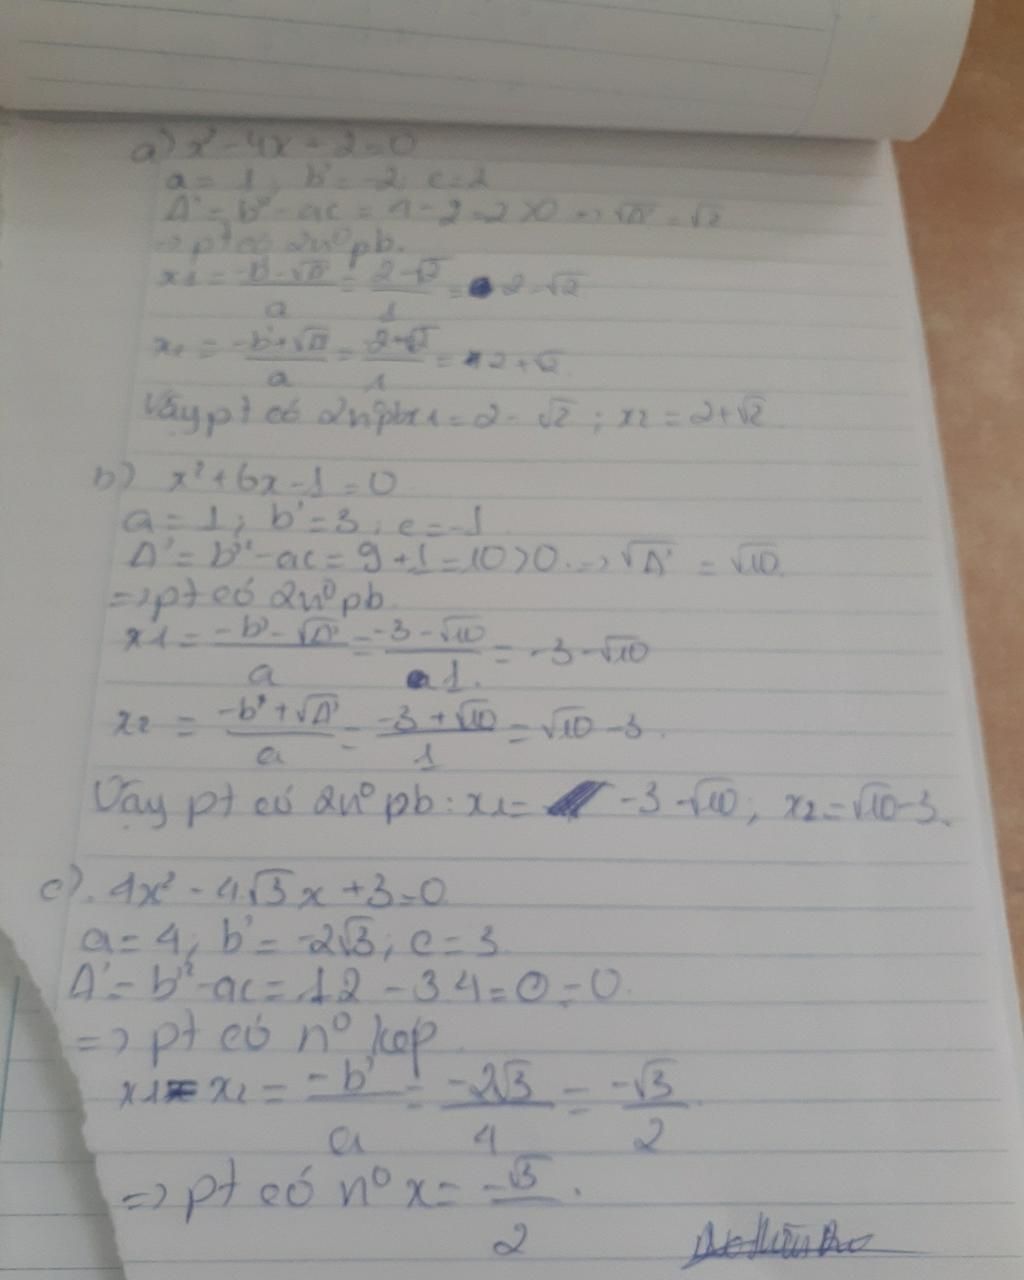 a) x² - 4x + 2 = 0
a = 1; b' = -2; c = 2
Δ' = b'² - ac = 4 - 2 = 2 > 0 => √Δ' = √2
=> pt có 2n⁰ pb.
x1 = -b' - √Δ' / a = 2 - √2 / 1 = 2 - √2
x2 = -b' + √Δ' / a = 2 + √2 / 1 = 2 + √2.
Vậy pt có 2n⁰ pb x1 = 2 - √2 ; x2 = 2 + √2
b) x² + 6x - 1 = 0
a = 1; b' = 3; c = -1
Δ' = b'² - ac = 9 + 1 = 10 > 0. => √Δ' = √10.
=> pt có 2n⁰ pb.
x1 = -b' - √Δ' / a = -3 - √10 / 1. = -3 - √10
x2 = -b' + √Δ' / a = -3 + √10 / 1 = √10 - 3.
Vậy pt có 2n⁰ pb: x1 = -3 - √10; x2 = √10 - 3.
c). 4x² - 4√3x + 3 = 0
a = 4; b' = -2√3; c = 3
Δ' = b'² - ac = 12 - 3.4 = 0 = 0.
=> pt có n⁰ kép
x1 = x2 = -b' / a = -2√3 / 4 = -√3 / 2.
=> pt có n⁰ x = -√3 / 2.